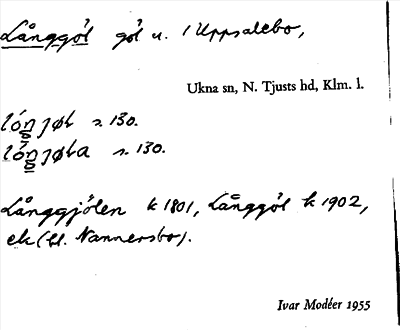 Långgöl göl u. / Uppsalebo,
Ukna sn, N. Tjusts hd, Klm. l.
lóŋjøl s. 130.
lóŋjøla s. 130.
Långgjölen k 1801, Långgöl k 1902,
ek (bl. Nannersbo).
Ivar Modéer 1955